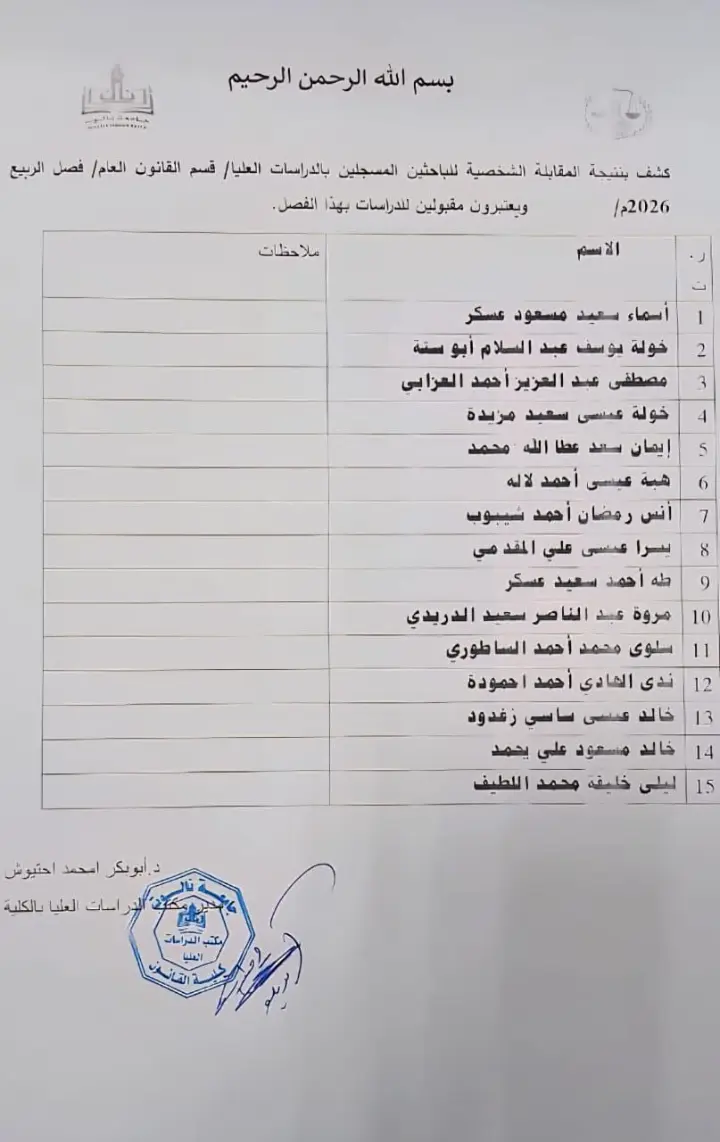 بسم الله الرحمن الرحيم
كشف بنتيجة المقابلة الشخصية للباحثين المسجلين بالدراسات العليا/ قسم القانون العام/ فصل الربيع
2026م/ ويعتبرون مقبولين للدراسات بهذا الفصل.
ر.ت الاسم ملاحظات
1 أسماء سعيد مسعود عسكر
2 خولة يوسف عبد السلام أبو ستة
3 مصطفى عبد العزيز أحمد العزابي
4 خولة عيسى سعيد مزيدة
5 إيمان سعد عطا الله محمد
6 هبة عيسى أحمد لاله
7 أنس رمضان أحمد شيبوب
8 يسرا عيسى علي المقدمي
9 طه أحمد سعيد عسكر
10 مروة عبد الناصر سعيد الدريدي
11 سلوى محمد أحمد الساطوري
12 ندى الهادي أحمد احمودة
13 خالد عيسى ساسي زغدود
14 خالد مسعود علي يحمد
15 ليلى خليفة محمد اللطيف
د.أبوبكر امحمد احتيوش
مدير مكتب الدراسات العليا بالكلية
جامعة نالوت
مكتب الدراسات
العليا
كلية القانون